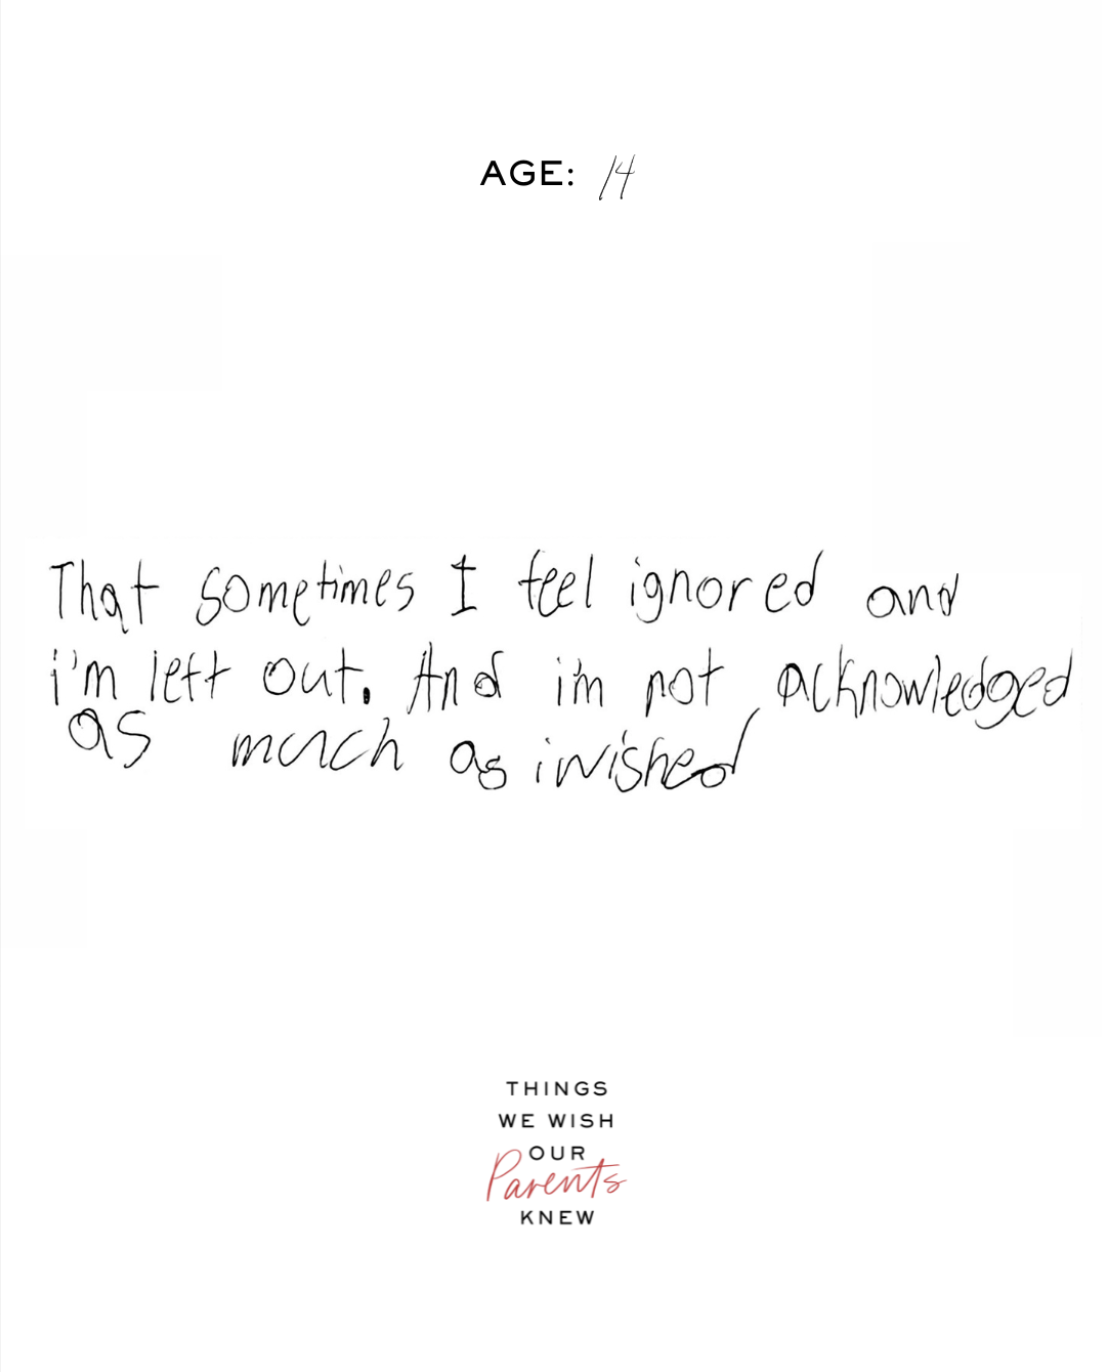 AGE: 14
That sometimes I feel ignored and
i'm left out. And i'm not acknowledged
as much as i wished
THINGS
WE WISH
OUR
Parents
KNEW